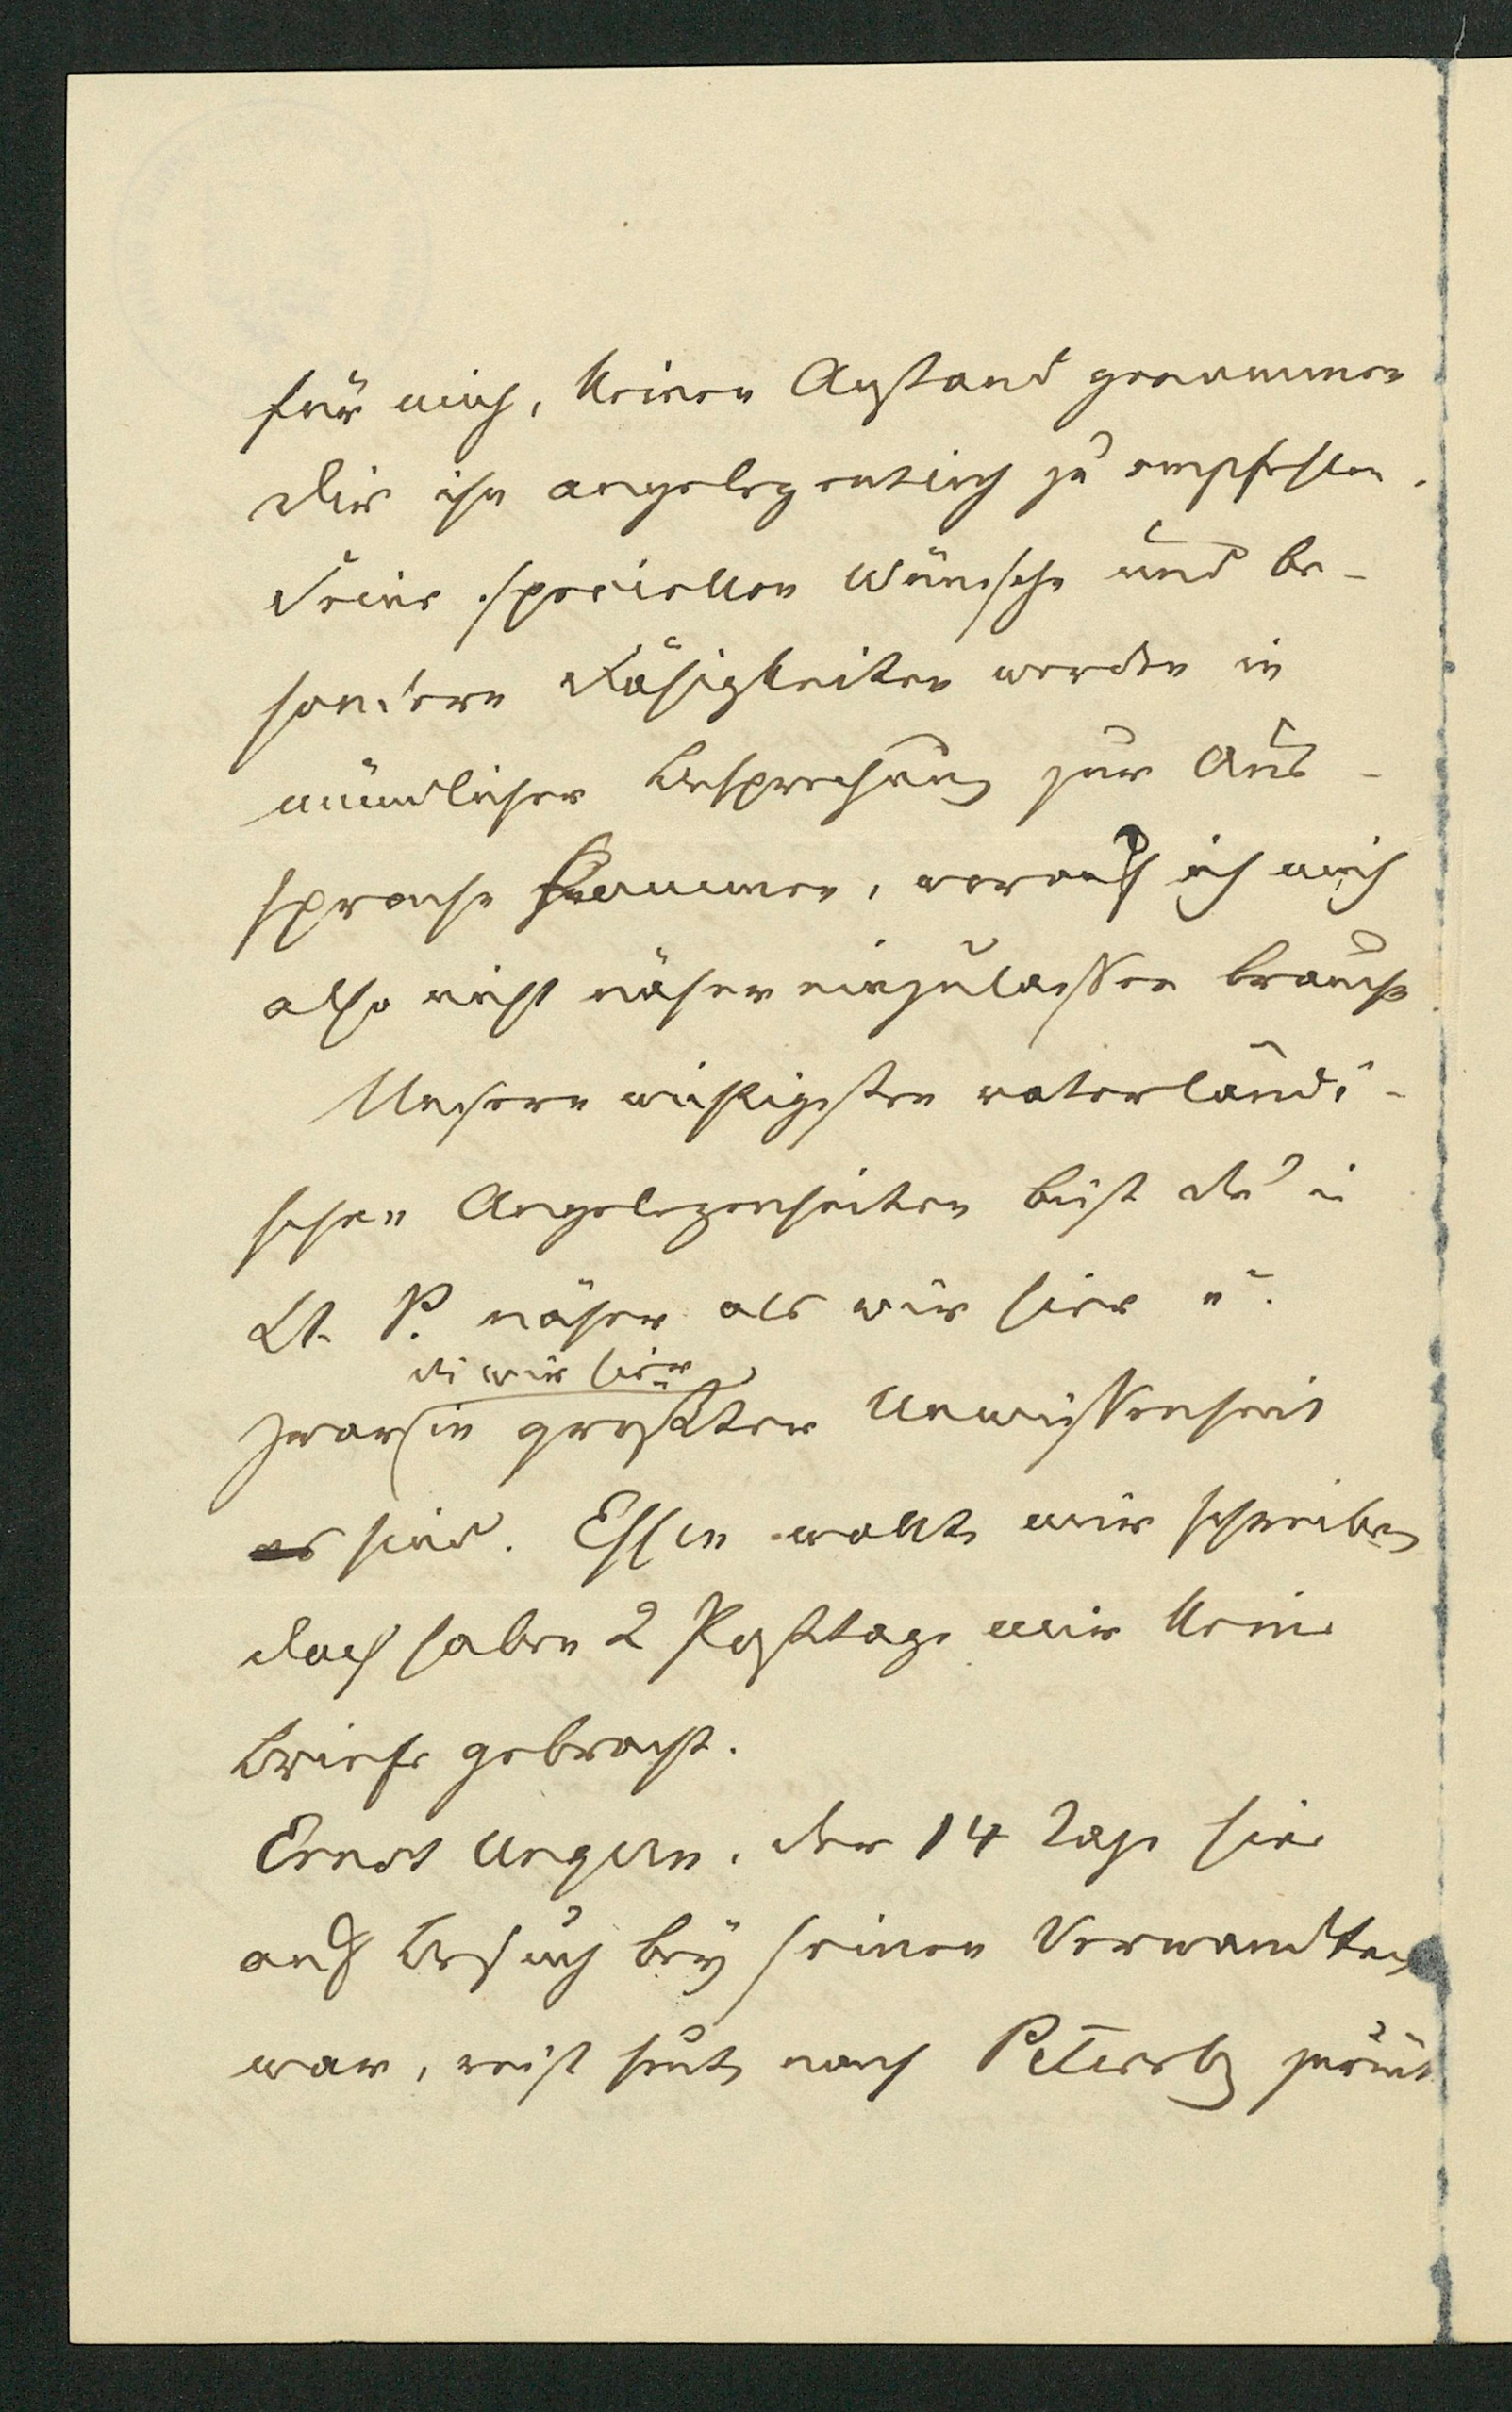 für mich, keinen Anstand genommen
Dir ihn angelegentlich zu empfehlen.
Seine speciellen Wünsche und be-
sondern Fähigkeiten werden in
mündlicher Besprechung zur Aus-
sprache kommen, worauf ich mich
also nicht näher einzulassen brauche
Unseren wichtigsten vaterländi-
schen Angelegenheiten bist du in
St. P. näher als wir hier u.
da wir hier
zwar in größter Unwissenheit
es sind. Essen wollte mir schreiben
doch haben 2 Posttage mir keine
Briefe gebracht.
Ernst Ungern, der 14 Tage hier
auf Besuch bey seinen Verwandten
war, reist heute nach Petersbg zurück